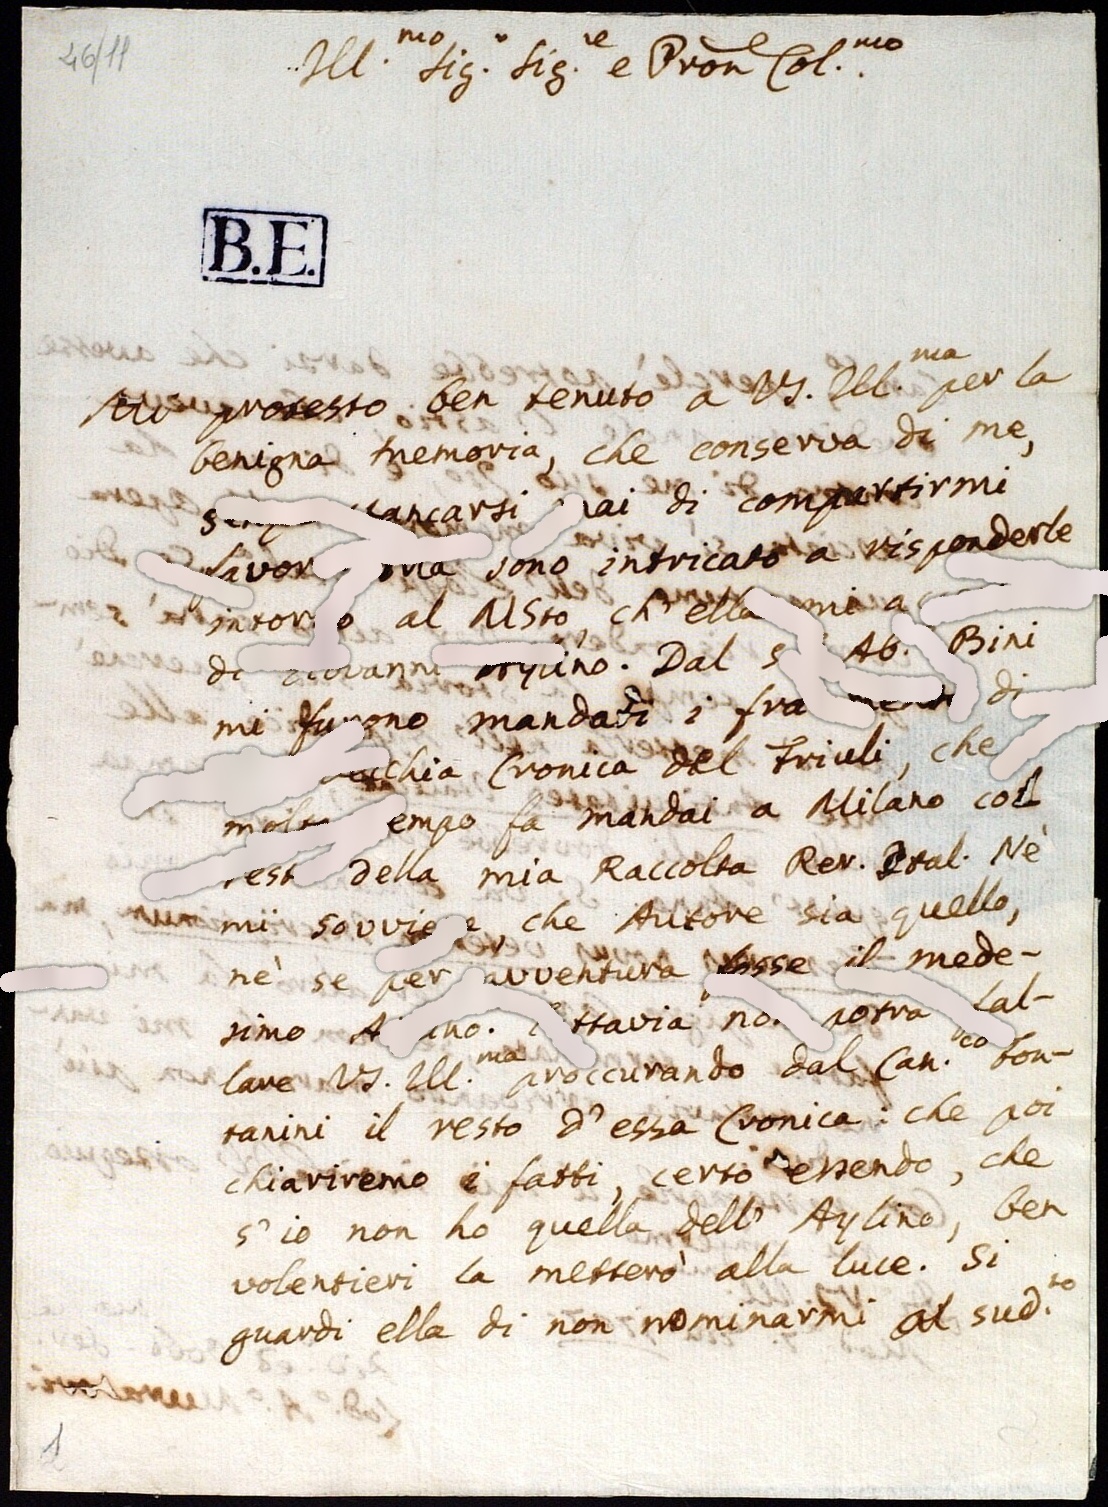 46/11
Ill.mo Sig.r Sig.re e Pron Col.mo
B.E.
Mi protesto ben tenuto a VS. Ill.ma per la
benigna memoria, che conserva di me,
stancarsi mai di compartirmi
ma sono intricato a risponderle
intorno al MSto, ch'ella mi a
di Giovanni Aylino. Dal Ab. Bini
mi furono mandati i di
vecchia Cronica del Friuli, che
molto tempo fa mandai a Milano col
resto della mia Raccolta Rer. Ital. Nè
mi sovviene, che Autore sia quello,
nè se per avventura fosse il mede-
simo Aylino. Tuttavia non potrà fal-
lare VS. Ill.ma proccurando dal Can.co Fon-
tanini il resto d'essa Cronica: che poi
chiariremo i fatti, certo essendo, che
s'io non ho quella dell' Aylino, ben
volentieri la metterò alla luce. Si
guardi ella di non nominarmi al sud.to
1